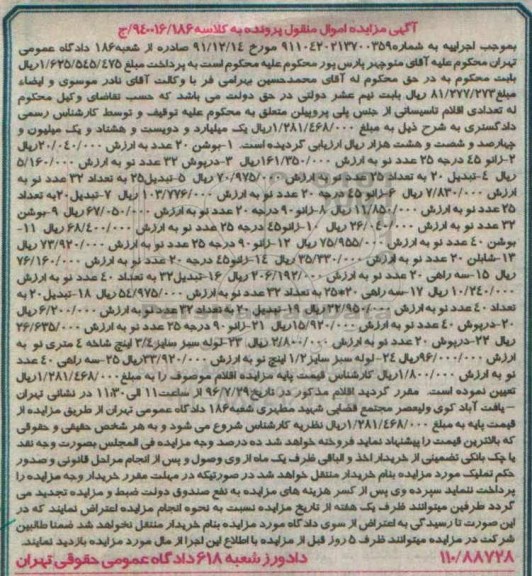 آگهی مزایده اموال منقول پرونده به کلاسه ۹۴۰۰۱۶/۱۸۶/ج
بموجب اجراییه به شماره ۹۱۱۰۴۲۰۲۱۳۷۰۰۳۵۹ مورخ ۹۱/۱۲/۱۴ صادره از شعبه ۱۸۶ دادگاه عمومی
تهران محکوم علیه آقای منوچهر پارس پور محکوم علیه محکوم است به پرداخت مبلغ ۱/۶۲۵/۵۴۵/۴۷۵ ریال
بابت محکوم به در حق محکوم له آقای محمدحسین بهرامی فر با وکالت آقای نادر موسوی و ایفاء
مبلغ ۸۱/۲۷۷/۲۷۳ ریال بابت نیم عشر دولتی در حق دولت می باشد که حسب تقاضای وکیل محکوم
له تعدادی اقلام تاسیساتی از جنس پلی پروپیلن متعلق به محکوم علیه توقیف و توسط کارشناس رسمی
دادگستری به شرح ذیل به مبلغ ۱/۲۸۱/۴۶۸/۰۰۰ ریال یک میلیارد و دویست و هشتاد و یک میلیون و
چهارصد و شصت و هشت هزار ریال ارزیابی گردیده است. ۱-بوشن ۲۰ عدد به ارزش ۲۰/۰۴۰/۰۰۰ ریال
۲-زانو ۴۵ درجه ۲۵ عدد نو به ارزش ۱۶۱/۳۵۰/۰۰۰ ریال ۳-درپوش ۳۲ عدد نو به ارزش ۵/۱۶۰/۰۰۰
ریال ۴-تبدیل ۲۰ به تعداد ۲۵ عدد نو به ارزش ۷۰/۹۷۵/۰۰۰ ریال ۵-تبدیل ۲۵ به تعداد ۳۲ عدد نو به
ارزش ۷/۸۳۰/۰۰۰ ریال ۶-زانو ۴۵ درجه ۲۰ عدد نو به ارزش ۱۰۳/۷۷۶/۰۰۰ ریال ۷-تبدیل ۲۰ به تعداد
۲۵ عدد نو به ارزش ۱۱/۸۵۰/۰۰۰ ریال ۸-زانو ۹۰ درجه ۲۰ عدد نو به ارزش ۶۷/۰۵۰/۰۰۰ ریال ۹-بوشن
۳۲ عدد نو به ارزش ۲۶/۰۴۰/۰۰۰ ریال ۱۰-زانو ۴۵ درجه ۲۵ عدد نو به ارزش ۶۸/۴۰۰/۰۰۰ ریال ۱۱-
بوشن ۴۰ عدد نو به ارزش ۷۵/۹۵۵/۰۰۰ ریال ۱۲-زانو ۹۰ درجه ۲۵ عدد نو به ارزش ۷۳/۹۲۰/۰۰۰ ریال
۱۳-شابلن ۲۰ عدد نو به ارزش ۲۵/۳۳۰/۰۰۰ ریال ۱۴-زانو ۴۵ درجه ۲۰ عدد نو به ارزش ۷۶/۱۶۰/۰۰۰
ریال ۱۵-سه راهی ۲۰ عدد نو به ارزش ۲۰۶/۱۹۲/۰۰۰ ریال ۱۶-تبدیل ۳۲ به تعداد ۴۰ عدد نو به ارزش
۱۰/۲۴۰/۰۰۰ ریال ۱۷-سه راهی ۲۰*۲۵ به تعداد ۳۲ عدد نو به ارزش ۵۴/۹۷۵/۰۰۰ ریال ۱۸-تبدیل ۲۰ به
تعداد ۴۰ عدد نو به ارزش ۳۲/۹۵۰/۰۰۰ ریال ۱۹-تبدیل ۲۰ به تعداد ۳۲ عدد نو به ارزش ۶/۲۰۰/۰۰۰ ریال
۲۰-درپوش ۴۰ عدد نو به ارزش ۱۵/۹۲۰/۰۰۰ ریال ۲۱-زانو ۹۰ درجه ۲۵ عدد نو به ارزش ۲۶/۶۳۵/۰۰۰
ریال ۲۲-درپوش ۲۰ عدد نو به ارزش ۲/۸۰۰/۰۰۰ ریال ۲۳-لوله سبز سایز ۳/۴ اینچ شاخه ۴ متری نو به
ارزش ۹۶/۰۰۰/۰۰۰ ریال ۲۴-لوله سبز سایز ۱/۲ اینچ نو به ارزش ۳۳/۹۲۰/۰۰۰ ریال ۲۵-سه راهی ۴۰ عدد
نو به ارزش ۱/۸۰۰/۰۰۰ ریال کارشناس قیمت پایه مزایده اقلام موصوف را به مبلغ ۱/۲۸۱/۴۶۸/۰۰۰ ریال
تعیین نموده است. مقرر گردید اقلام مذکور در تاریخ ۹۶/۷/۲۹ از ساعت ۱۱ الی ۱۱:۳۰ در نشانی تهران
– یافت آباد کوی ولیعصر مجتمع قضایی شهید مطهری شعبه ۱۸۶ دادگاه عمومی تهران از طریق مزایده از
قیمت پایه به مبلغ ۱/۲۸۱/۴۶۸/۰۰۰ ریال نظریه کارشناس شروع می شود و به هر شخص حقیقی و حقوقی
که بالاترین قیمت را پیشنهاد نماید فروخته خواهد شد ده درصد وجه مزایده فی المجلس بصورت وجه نقد
یا چک بانکی تضمینی از خریدار اخذ و الباقی ظرف یک ماه از وی وصول و پس از انجام مراحل قانونی و صدور
حکم تملیک مورد مزایده بنام خریدار منتقل خواهد شد در صورتیکه در مهلت مقرر خریدار وجه مزایده را
پرداخت ننماید سپرده وی پس از کسر هزینه های مزایده به نفع صندوق دولت ضبط و مزایده تجدید می
گردد طرفین میتوانند ظرف یک هفته از تاریخ مزایده نسبت به نحوه انجام مزایده اعتراض نمایند که در
این صورت تا رسیدگی به اعتراض از سوی دادگاه مورد مزایده بنام خریدار منتقل نخواهد شد ضمنا طالبین
شرکت در مزایده میتوانند ظرف ۵ روز قبل از مزایده با اطلاع این اجرا از مال مورد مزایده بازدید نمایند.
۱۱۰/۸۸۷۲۸ دادورز شعبه ۶۱۸ دادگاه عمومی حقوقی تهران